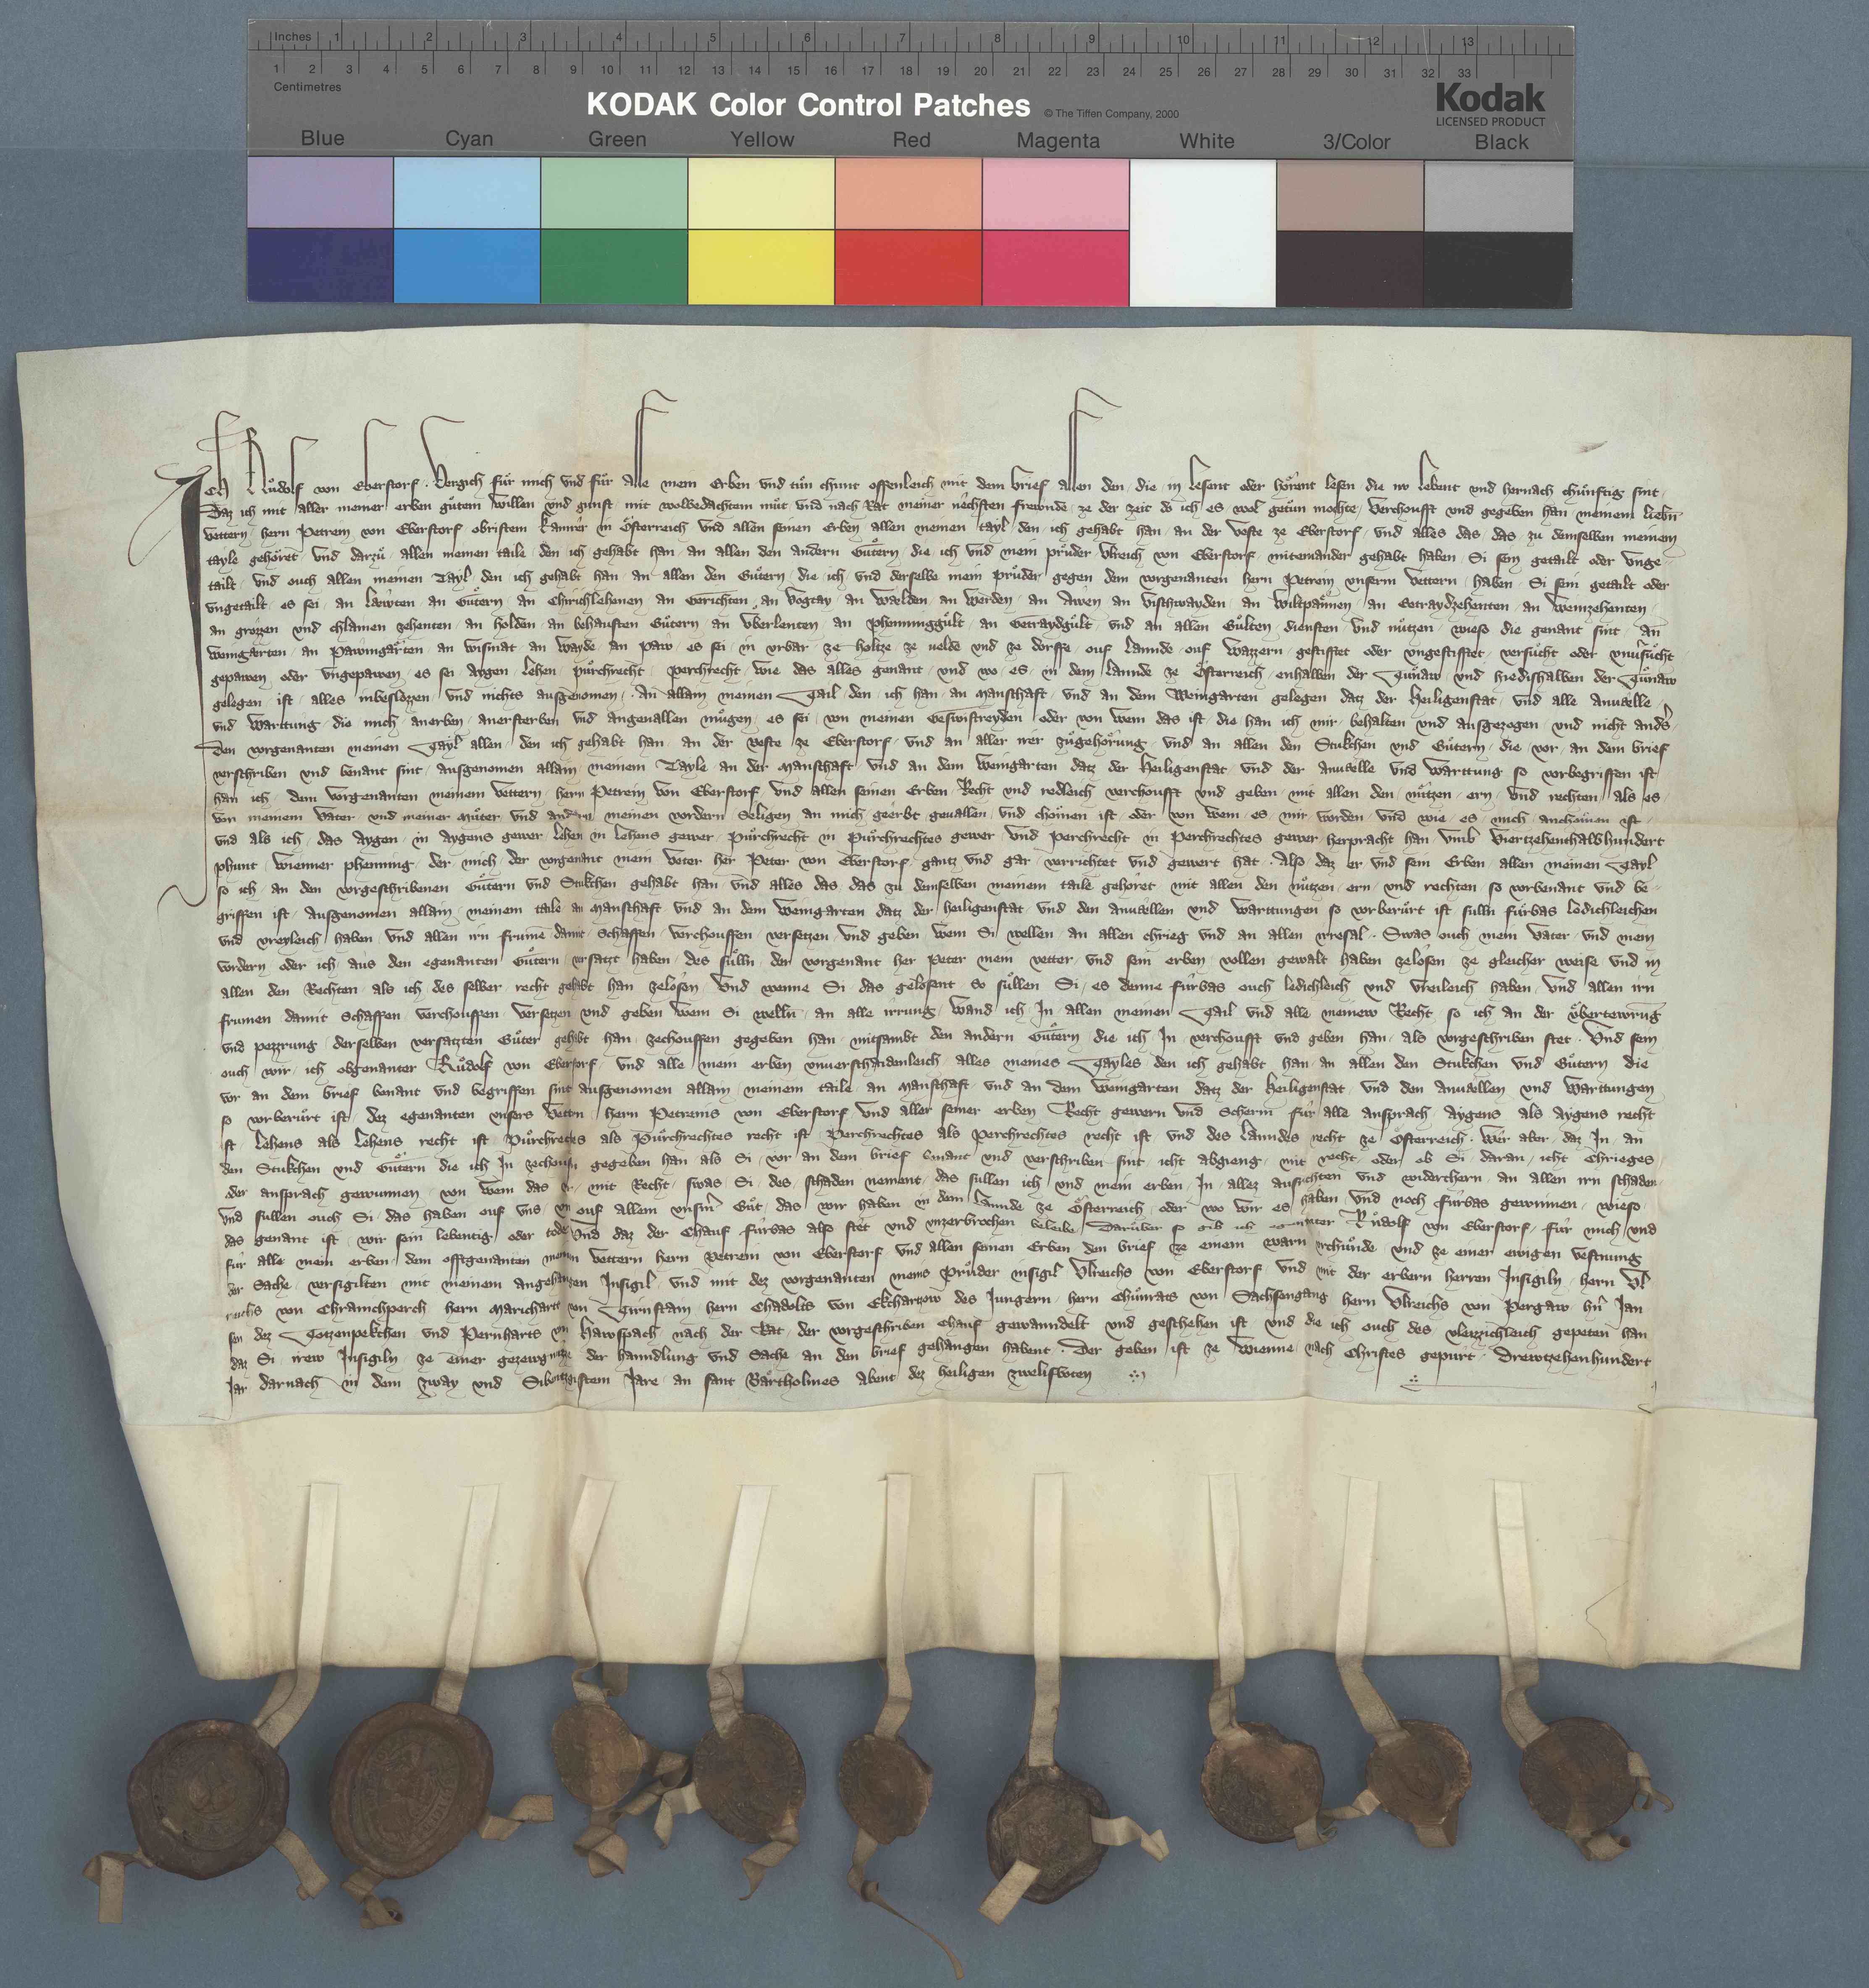 Inches 1 2 3 4 5 6 7 8 9 10 11 12 13
1 2 3 4 5 6 7 8 9 10 11 12 13 14 15 16 17 18 19 20 21 22 23 24 25 26 27 28 29 30 31 32 33
Centimetres
KODAK Color Control Patches © The Tiffen Company, 2000 Kodak
LICENSED PRODUCT
Blue Cyan Green Yellow Red Magenta White 3/Color Black
Ich Ruͦdolf von Eberstorf. Vergich fuͤr mich vnd fuͤr alle mein Erben vnd tuͦn chunt offenleich mit dem brief allen den die in lesent oder hoͤrent lesen die nv lebent vnd hernach chuͤnftig sint
Daz ich mit aller meiner erben guͦtem willen vnd gunst mit wolbedachtem muͦt vnd nach Rat meiner nechsten frewnde ze der zeit do ich es wol getuͦn mochte verchoufft vnd gegeben han meinem liebn
vettern hern Petrein von Eberstorf obristem Kamrer in Österreich vnd allen seinen Erben allen meinen tayl den ich gehabt han an der veste ze Eberstorf vnd alles das das zu demselben meinem
tayle gehoͤret vnd darzuͦ allen meinen taile den ich gehabt han an allen den andern Guͤtern die ich vnd mein pruder Vlreich von Eberstorf miteinander gehabt haben Si sein getailt oder vnge-
tailt vnd ouch allen meinen Tayl den ich gehabt han an allen den Guͤtern die ich vnd derselbe mein pruͦder gegen dem vorgenanten hern Petrein vnserm vettern haben Si sein getailt oder
vngetailt es sei an Laͤwten an Guͤtern an Chirichlehenen an Gerichten an Vogtay an Walden an Werden an Awen an Vischwayden an Wiltpaͤnnen an Getraydzehenten an Weinzehenten
an grozzen vnd chlainen zehenten an holden an behausten Guͤtern an vͤberlenten an phenninggult an Getraydgult vnd an allen Guͤlten diensten vnd nuͤtzen wieso die genant sint an
Weingaͤrten an Pawmgaͤrten an wismat an wayde an paw es sei in vrbar ze holtze ze velde vnd ze dorffe ouf Lannde ouf Wazzern gestifftet oder vngestifftet versuͦcht oder vnuersuͦcht
gepawen oder vngepawen es sei Aygen Lehen purchrecht perchrecht wie das alles genant vnd wo es in dem Lannde ze Österreich enhalben der Tuͦnaw vnd hiedishalben der Tuͦnaw
gelegen ist alles inbeslozzen vnd nichts ausgenomen. An allain meinen Tail den ich han an manschaft vnd an dem Weingarten gelegen datz der Heiligenstat vnd alle anuelle
vnd Warttung die mich anerben anersterben vnd angeuallen muͤgen es sei von meinen Geswistreyden oder von wem das ist die han ich mir behalten vnd ausgezogen vnd nicht anders
Den vorgenanten meinen Tayl allen den ich gehabt han an der veste ze Eberstorf vnd an aller irer zuͦgehoͤrung vnd an allen den Stukchen vnd Guͤtern die vor an dem brief
verschriben vnd benant sint ausgenomen allain meinem Tayle an der manschaft vnd an dem Weingarten datz der Heiligenstat vnd der anuelle vnd Warttung so vorbegriffen ist
han ich dem vorgenanten meinem vettern hern Petrein von Eberstorf vnd allen seinen Erben Recht vnd redleich verchoufft vnd geben mit allen den nuͤtzen ern vnd rechten als es
von meinem Vater vnd meiner muͦter vnd andern meinen vordern Seligen an mich geerbt geuallen vnd choͤmen ist oder von wem es mir worden vnd wie es mich anchoͤmen ist
vnd als ich das Aygen in Aygens gewer Lehen in Lehens gewer purchrecht in purchrechtes gewer vnd perchrecht in perchrechtes gewer herpracht han vmb Viertzehenthalbhundert
phunt wienner phenning der mich der vorgenant mein Veter her Peter von Eberstorf gantz vnd gar verrichtet vnd gewert hat. Also daz er vnd sein Erben allen meinen Tayl
so ich an den vorgeschribenen Guͤtern vnd Stukchen gehabt han vnd alles das das zu demselben meinem taile gehoͤret mit allen den nuͤtzen ern vnd rechten so vorbenant vnd be-
griffen ist ausgenomen allain meinem taile an manschaft vnd an dem Weingarten datz der heiligenstat vnd den anuellen vnd Warttungen so vorberuͤrt ist sulln fuͤrbas ledichleichen
vnd vreyleich haben vnd allen irn frumen damit Schaffen verchouffen versetzen vnd geben wem Si wellen an allen chrieg vnd an allen irresal. Swas ouch mein Vater vnd mein
vordern oder ich aus den egenanten Guͤtern versatzt haben des suͤlln der vorgenant her Peter mein vetter vnd sein erben vollen gewalt haben zeloͤsen ze gleicher weise vnd in
allen den Rechten als ich des selber recht gehabt han zeloͤsen vnd wenne Si das geloͤsent so suͤllen Si es denne fuͤrbas ouch ledichleich vnd vreileich haben vnd allen irn
frumen damit Schaffen verchouffen versetzen vnd geben wem Si welln an alle irrung wand ich In allen meinen Tail vnd alle meinew Recht so ich an der vͤbertewrung
vnd pezzrung derselben versatzten Guͤter gehabt han zechouffen gegeben han mitsambt den andern Guͤtern die ich In verchoufft vnd geben han als vorgeschriben stet. Vnd sein
ouch wir ich obgenanter Ruͦdolf von Eberstorf vnd alle mein erben vnuerschaidenleich alles meines Tayles den ich gehabt han an allen den Stukchen vnd Guͤtern die
vor an dem brief benant vnd begriffen sint ausgenomen allain meinem taile an manschaft vnd an dem Weingarten datz der Heiligenstat vnd den anuellen vnd Warttungen
so vorberuͤrt ist dez egenanten vnsers vettern hern Petreins von Eberstorf vnd aller seiner erben Recht gewern vnd Scherm fuͤr alle ansprach Aygens als Aygens recht
ist Lehens als Lehens recht ist Purchrechtes als Purchrechtes recht ist Perchrechtes als perchrechtes recht ist vnd des Lanndes recht ze Österreich. Wer aber daz In an
den Stukchen vnd Guͤtern die ich In zechouffen gegeben han als Si vor an dem brief benant vnd verschriben sint icht abgieng mit recht oder ob Si daran icht Chrieges
oder ansprach gewunnen von wem das wer mit Recht swas Si des schaden nement das sullen ich vnd mein erben In allez ausrichten vnd widerchern an allen irn schaden
vnd sullen ouch Si das haben ouf vns vnd ouf allem vnserm Guͦt das wir haben in dem Lannde ze Österreich oder wo wir es haben vnd noch fuͤrbas gewinnen wieso
das genant ist wir sein lebentig oder tode Vnd daz der Chauf fuͤrbas also stet vnd vnzerbrochen beleibe Daruͤber so gib ich egenanter Ruͦdolf von Eberstorf fuͤr mich vnd
fuͤr alle mein erben dem offtgenanten meinem vettern hern Petrein von Eberstorf vnd allen seinen Erben den brief ze einem warn vrchuͤnde vnd ze einer ewigen vestnung
der Sache versigilten mit meinem angehangen Insigil vnd mit dez vorgenanten meins Pruͦder insigil Vlreichs von Eberstorf vnd mit der erbern herren Insigiln hern Vl
reichs von Chranichperch hern Maricharts von Tirnstain hern Chadolts von Ekchartzow des Jungern hern Chuͦnrats von Sachsengang hern Vlreichs von Pergaw hern Jan
sen dez Totzenpekchen vnd Pernharts von Hawspach nach der Rat der vorgeschriben chauf gewanndelt vnd geschehen ist vnd die ich ouch des vleizzichleich gepeten han
daz Si irew Insigiln ze einer gezewgnuzze der hanndlung vnd Sache an den brief gehangen habent. Der geben ist ze Wienne nach Christes gepurt Drewtzehenhundert
Jar darnach in dem zway vnd Sibentzgistem Jare an sant Bartholmes Abent dez heiligen zwelifboten